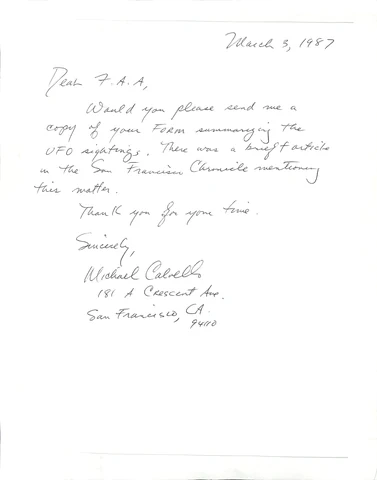 March 3, 1987
Dear F.A.A,
Would you please send me a
copy of your FORM summarizing the
UFO sightings. There was a brief article
in the San Francisco Chronicle mentioning
this matter.
Thank you for your time.
Sincerely,
Michael Calvello
181 A Crescent Ave.
San Francisco, CA.
94110